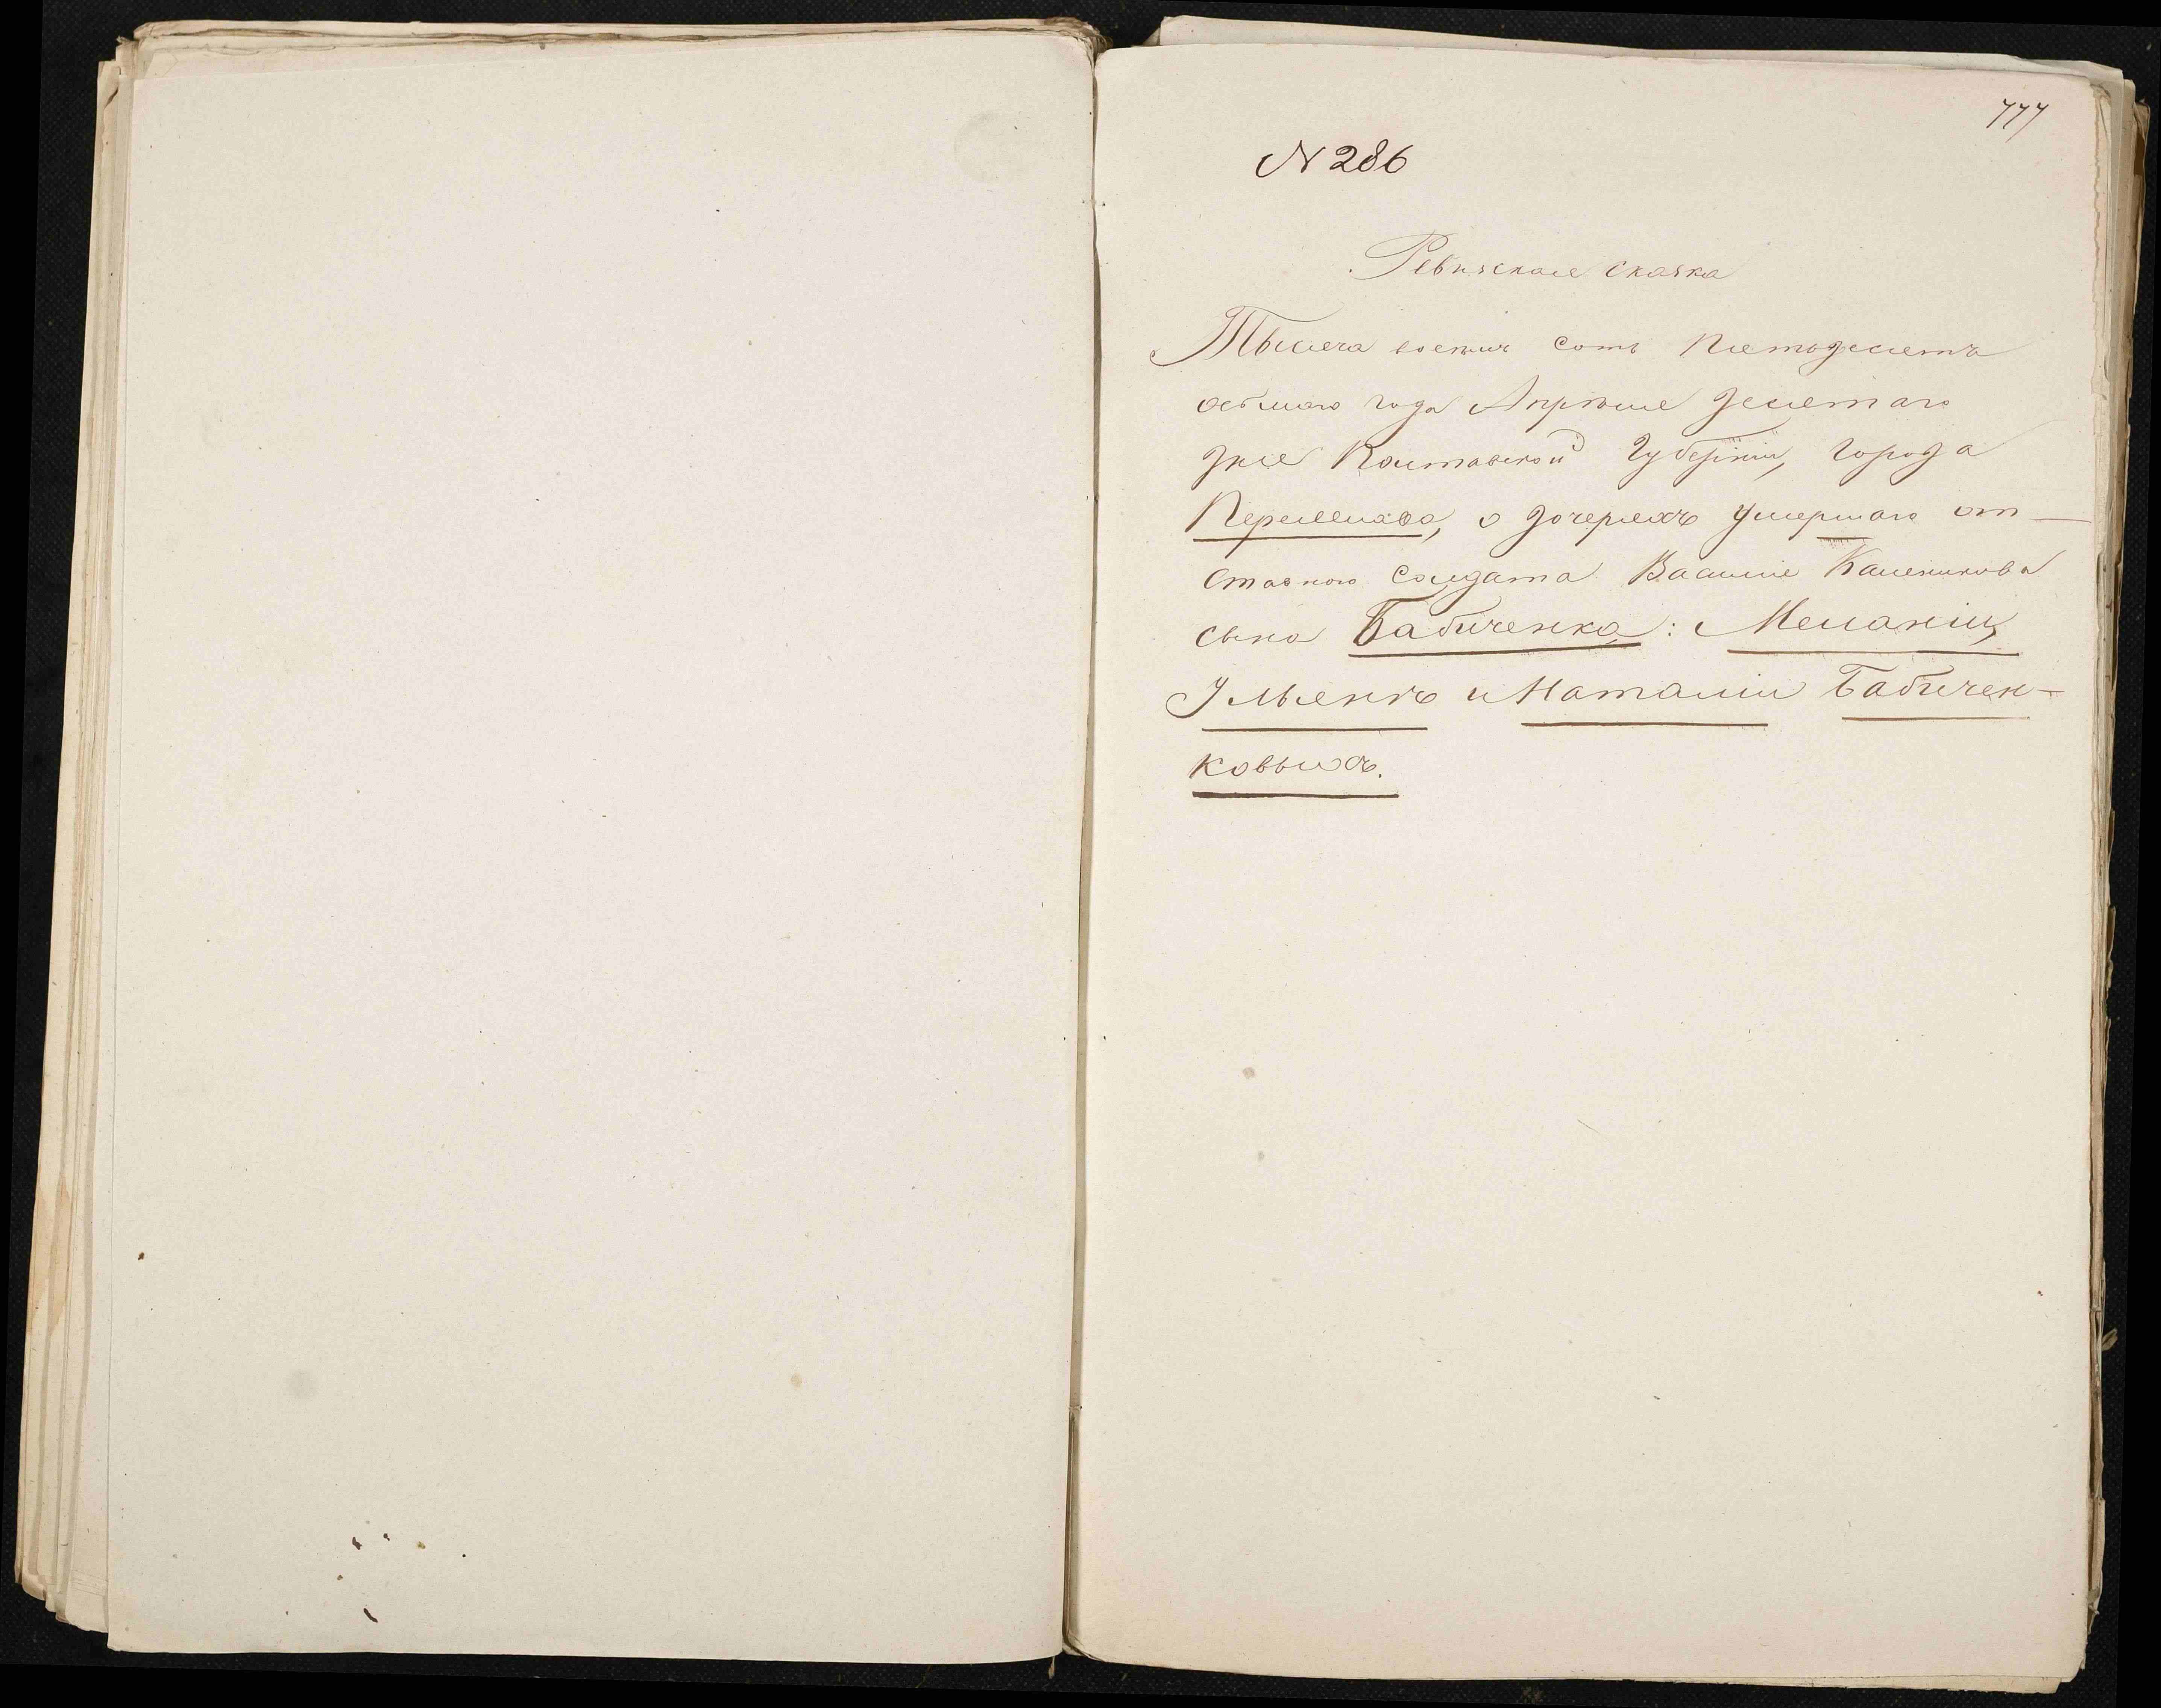 777
N 286
Ревизская сказка
Тысяча восемь сотъ пятьдесятъ
осьмаго года Апрѣля десятаго
дня Полтавской Губерніи, города
Переяслава, о дочеряхъ умершаго от-
ставного солдата Василія Каленикова
сына Бабиченка: Меланіи,
Ульянѣ и Наталіи Бабичен-
ковыхъ.